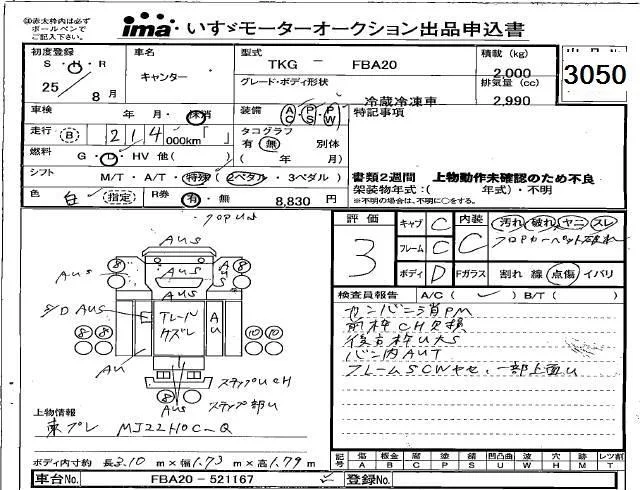 ㊟赤太枠内は必ず
ボールペンで
ご記入下さい。
ima いすゞモーターオークション出品申込書
初度登録
S・H・R
25/8月
車名
キャンター
型式
TKG - FBA20
積載 (kg)
2,000
3050
グレード・ボディ形状
冷蔵冷凍車
排気量 (cc)
2,990
車検
年 月・抹消
装備
AC・PS・PW
特記事項
走行 B 214000km
タコグラフ
有・無 別体
( 年 月)
燃料
G・D・HV 他( )
シフト
M/T・A/T・特殊(2ペダル・3ペダル)
書類2週間 上物動作未確認のため不良
架装物年式:( 年式)・不明
※不明の場合は、不明に○をする。
色 白 (指定)
R券 有・無 8,830 円
評価
3
キャブ C
フレーム C
ボディ D
内装 C
汚れ 破れ ヤニ スレ
フロアカーペット破れ
Fガラス 割れ 線 点傷 イバリ
検査員報告 A/C( ✓ ) B/T( )
カンバン消PM
前枠CH欠損
後方枠UxS
バン内AUT
フレームSCWヤセ、一部上面U
AUS
AUS
AUS
S/D AUS
アレーバ
ケズレ
AU
AU
AUS
ステップUCH
ステップ部U
上物情報
東プレ MJ22H0C-Q
ボディ内寸約 長3.10 m×幅1.73 m×高1.79 m
記号 傷A 板金B 腐C 塗P 錆S 凹凸曲U 波W 穴H 跡M レツ前T
車台No. FBA20-521167
登録No.